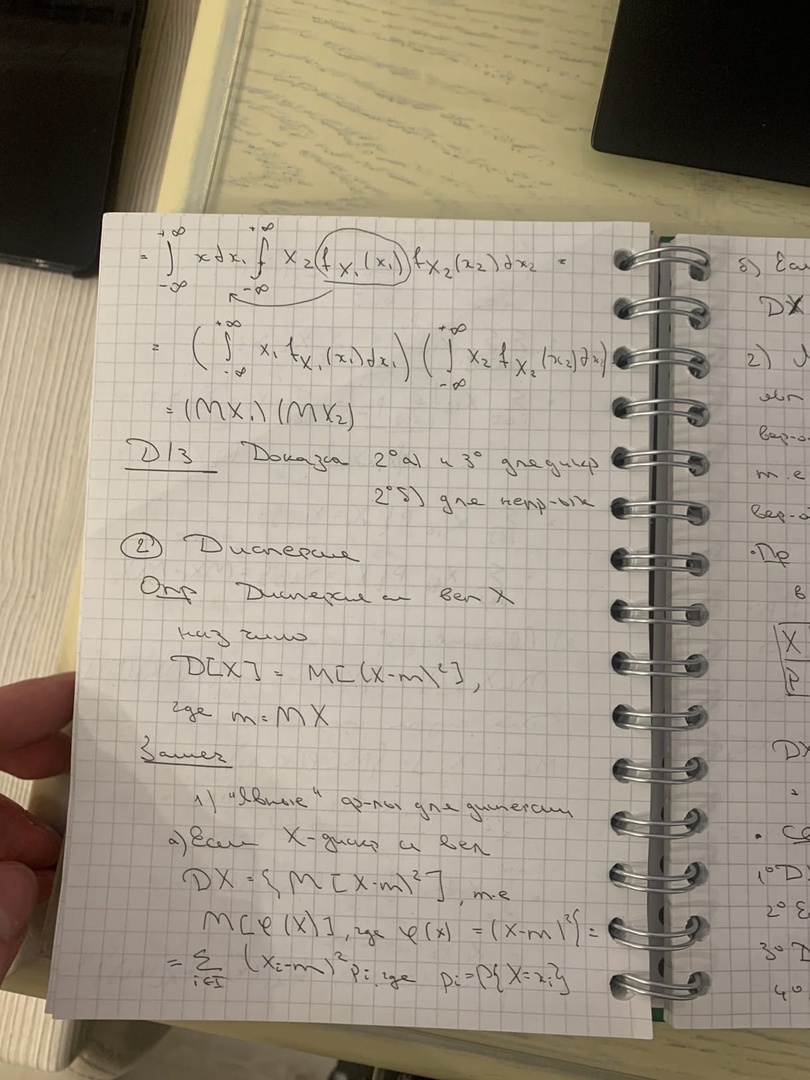 = ∫_{-∞}^{+∞} x dx₁ ∫_{-∞}^{+∞} x₂ f_{X₁}(x₁) f_{X₂}(x₂) dx₂ =
= (∫_{-∞}^{+∞} x₁ f_{X₁}(x₁) dx₁) (∫_{-∞}^{+∞} x₂ f_{X₂}(x₂) dx₂)
= (MX₁) (MX₂)
Д/З Доказа 2°а) и 3° для дискр
2°б) для непр-ых
② Дисперсия
Опр Дисперсия сл вел X
наз число
D[X] = M[(X-m)²],
где m = MX
Замеч
1) "Явные" ф-лы для дисперсии
а) Если X-дискр сл вел
DX = { M[X-m)²], т.е
M[φ(X)], где φ(x) = (x-m)²} =
= Σ_{i∈I} (xᵢ-m)² pᵢ, где pᵢ = P{X=xᵢ}
б) Есл
DX
2)
вер-о
т.е
вер-о
·Пр
в
X
P
DX
=
1° D
2° Е
3° D
4°